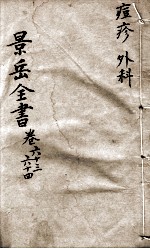 痘疹 外科
景岳全書 卷六十三
六十四